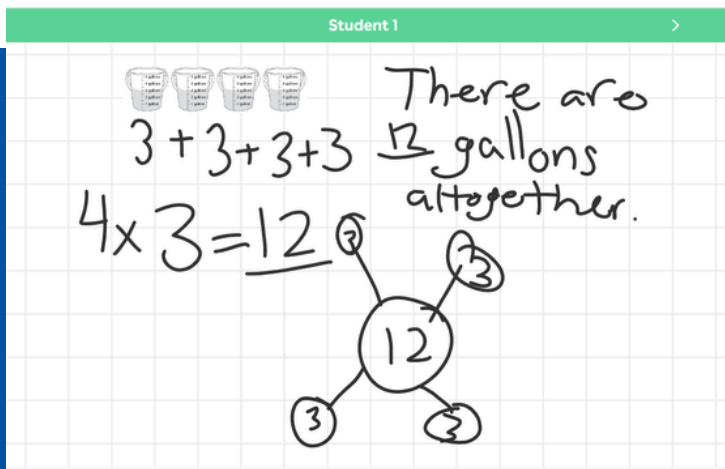 Student 1
There are
3+3+3+3 12 gallons
altogether.
4x3=12
3
3
12
3
3